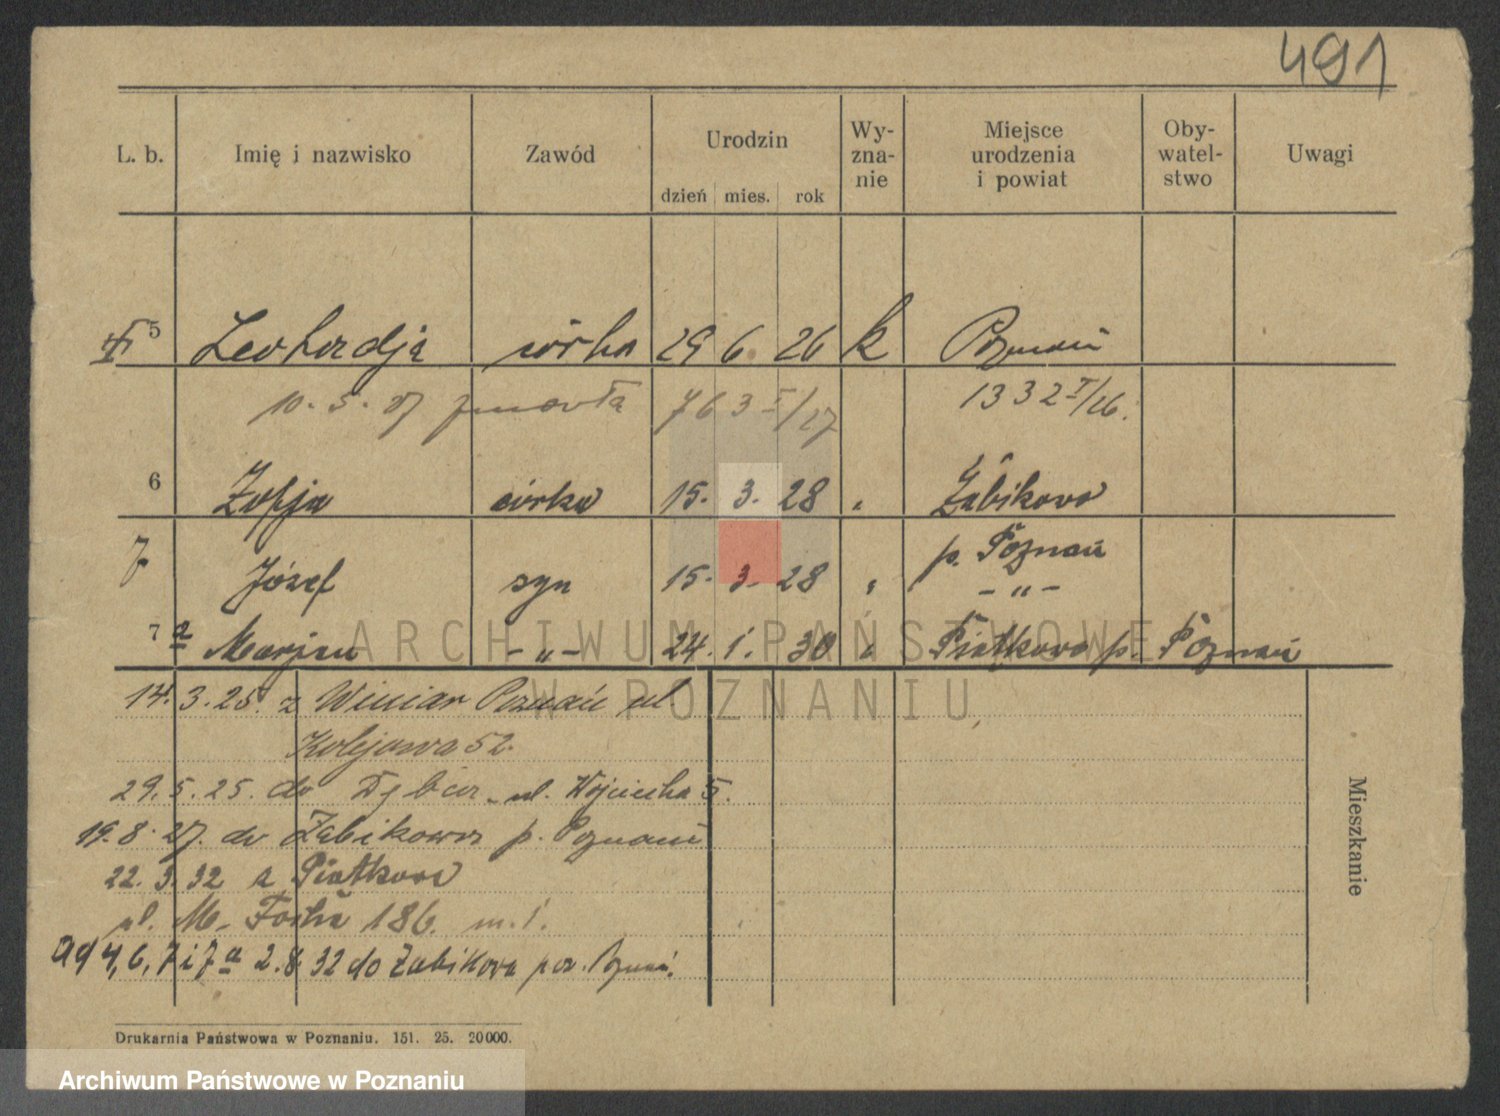 491
L. b. Imię i nazwisko Zawód Urodzin dzień mies. rok Wy-zna-nie Miejsce urodzenia i powiat Oby-watel-stwo Uwagi
5 Leokadja córka 29 6. 26 k Poznań
10. 5. 27 zmarła 763 I/27 1332 I/26.
6 Zofja córka 15. 3. 28 " Żabikowo
p. Poznań
7 Józef syn 15. 3. 28 " - " -
7 a Marjan - " - 24. 1. 30 " Piątkowo p. Poznań
ARCHIWUM PAŃSTWOWE
W POZNANIU
14. 3. 25. z Winiar Poznań ul.
Kolejowa 52.
29. 5. 25. do Dębca ul. Wojciecha 5.
19. 8. 27. do Żabikowa p. Poznań
22. 3. 32 z Piątkowo
ul. M. Focha 186. m. 1.
ad 4, 6, 7 i 7 a 2. 8. 32 do Żabikowa pow. Poznań.
Mieszkanie
Drukarnia Państwowa w Poznaniu. 151. 25. 20000.
Archiwum Państwowe w Poznaniu